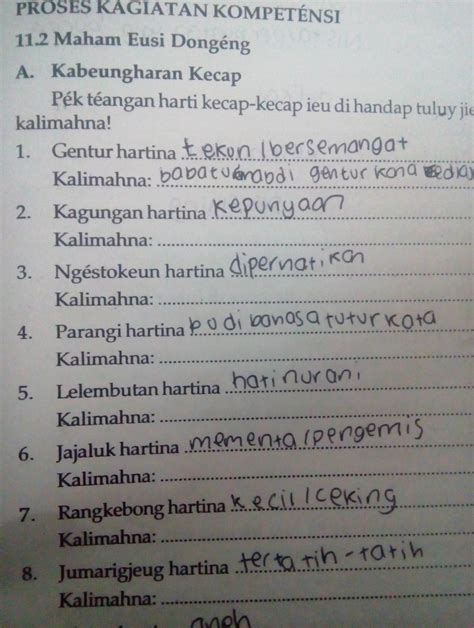 PROSES KAGIATAN KOMPETÉNSI
11.2 Maham Eusi Dongéng
A. Kabeungharan Kecap
Pék téangan harti kecap-kecap ieu di handap tuluy jie
kalimahna!
1. Gentur hartina tekun/bersemangat
Kalimahna: gentur kana
2. Kagungan hartina kepunyaan
Kalimahna:
3. Ngéstokeun hartina dipernatikan
Kalimahna:
4. Parangi hartina budi banasa tutur kata
Kalimahna:
5. Lelembutan hartina hati nurani
Kalimahna:
6. Jajaluk hartina mementa/pengemis
Kalimahna:
7. Rangkebong hartina kecil/ceking
Kalimahna:
8. Jumarigjeug hartina tertatih-tatih
Kalimahna:
aneh